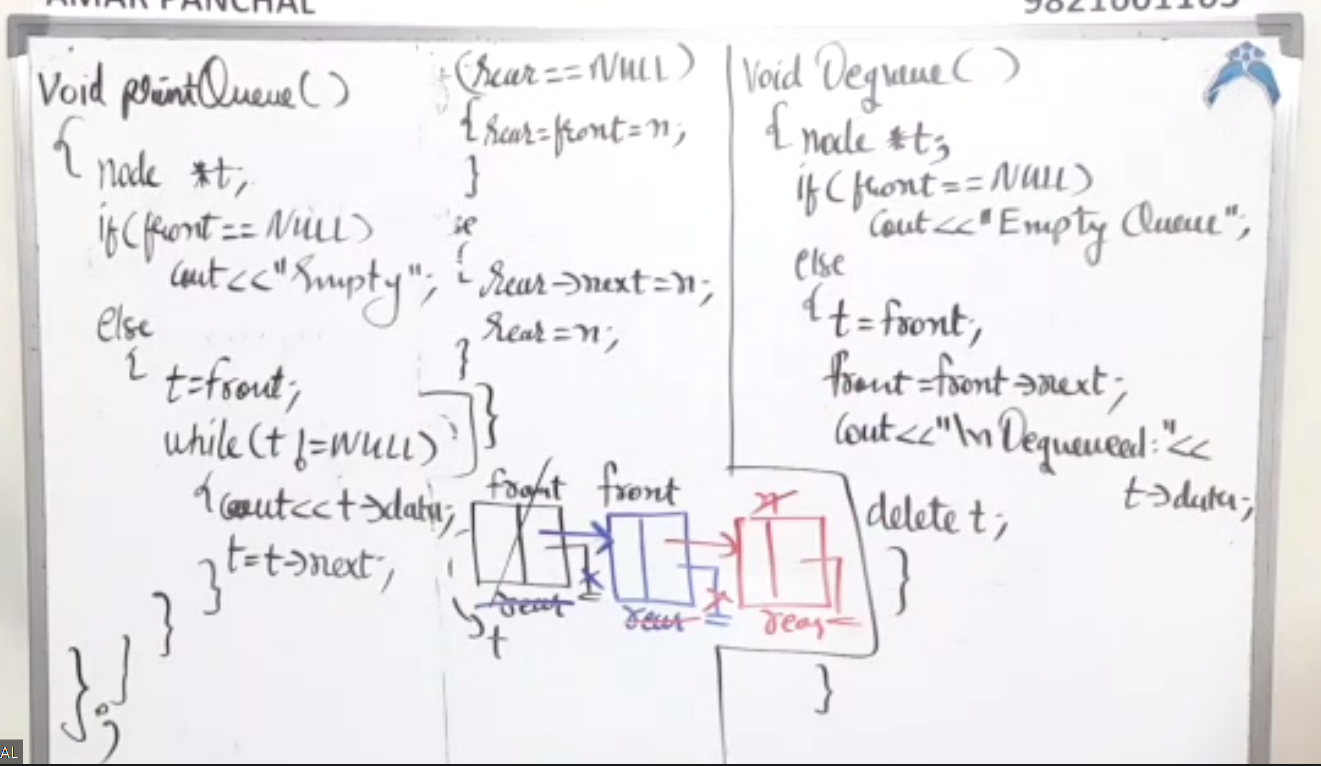 AMAR PANCHAL
Void printQueue()
{
node *t;
if(front == NULL)
cout<<"Empty";
else
{
t=front;
while(t !=NULL)
{ cout<<t->data;
t=t->next;
}
}
}
};
(rear==NULL)
{ rear=front=n;
}
se
{
rear->next=n;
rear=n;
}
}
front front n
rear rear rear
t
Void Dequeue()
{ node *t;
if(front==NULL)
cout<<"Empty Queue";
else
{ t=front;
front=front->next;
cout<<"\n Dequeued:"<<
t->data;
delete t;
}
}
AL